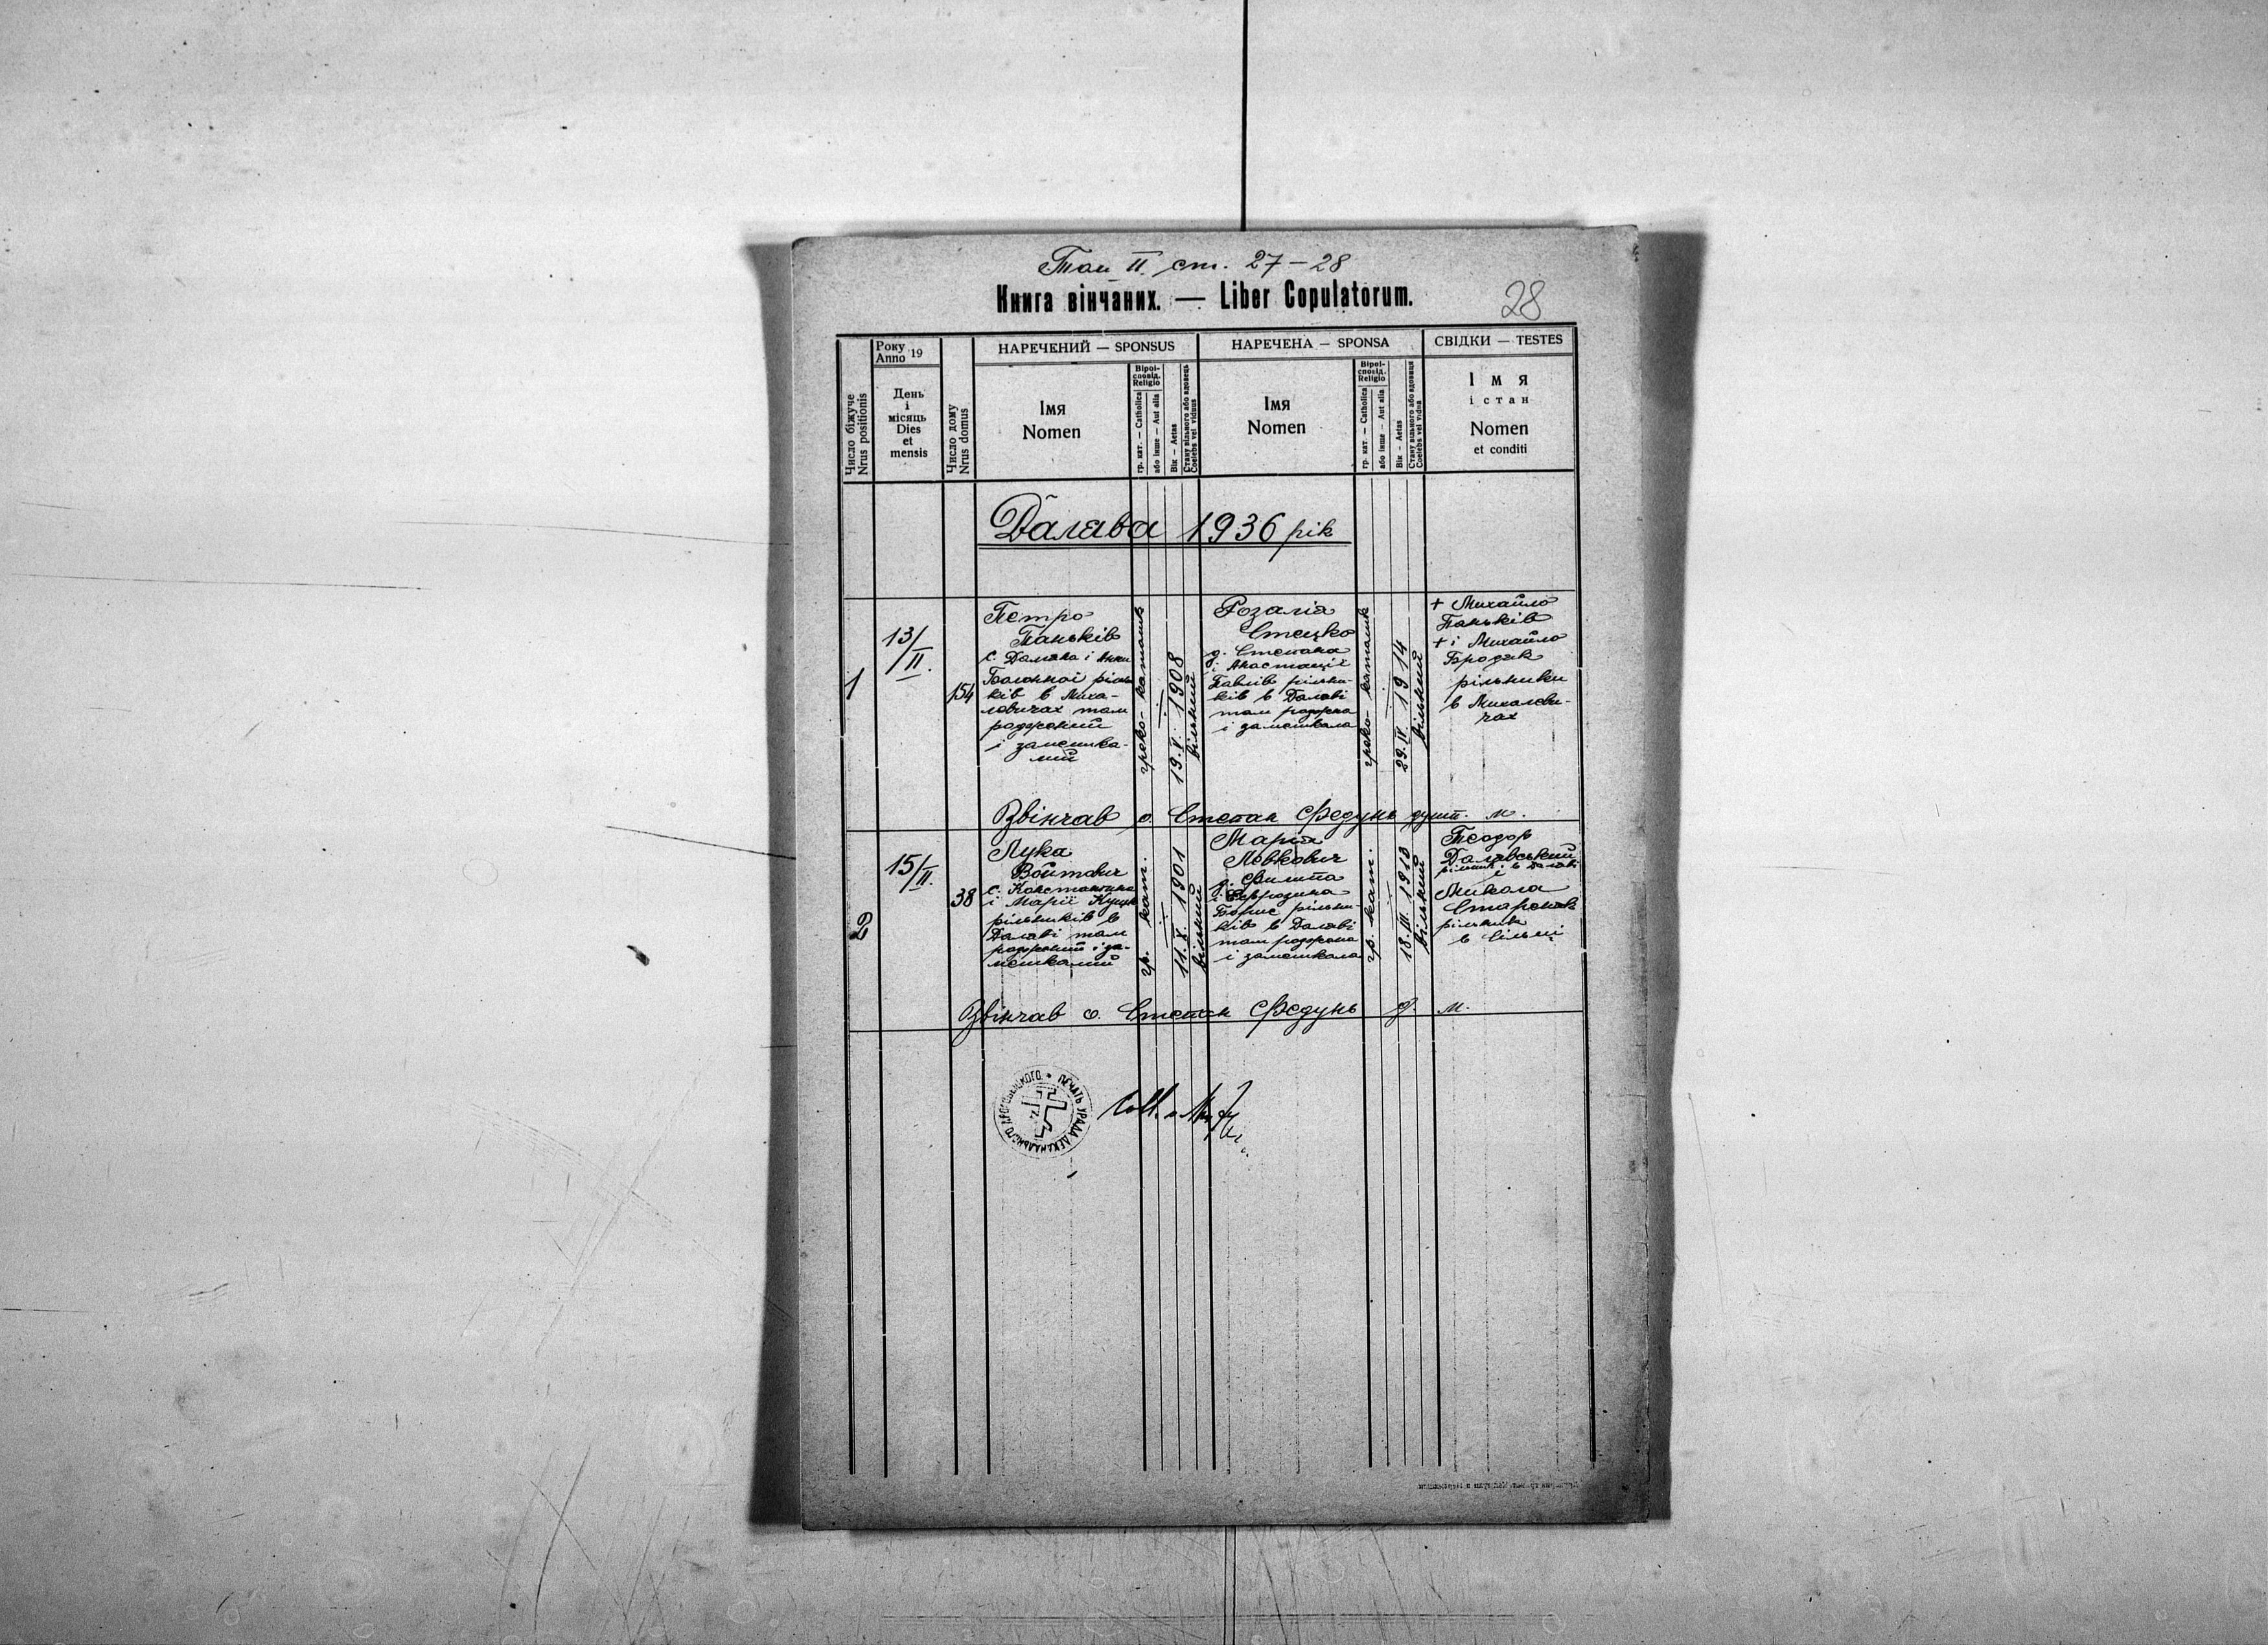 Том II. ст. 27-28
Книга вінчаних. — Liber Copulatorum.
28
Число біжуче
Nrus positionis
Року
Anno 19
День
і
місяць
Dies
et
mensis
Число дому
Nrus domus
НАРЕЧЕНИЙ — SPONSUS
Імя
Nomen
Віроі-
сповід.
Religio
гр. кат. — Catholica
або інше — Aut alia
Вік — Aetas
Стану вільного або вдовець
Coelebs vel viduus
НАРЕЧЕНА — SPONSA
Імя
Nomen
Віроі-
сповід.
Religio
гр. кат. — Catholica
або інше — Aut alia
Вік — Aetas
Стану вільного або вдовиця
Coelebs vel vidua
СВІДКИ — TESTES
Імя
і стан
Nomen
et conditi
Далява 1936 рік
1
13/II.
154
Петро
Паньків
с. Дамяна і Анни
рільни-
ків в Миха-
йловичах там
роджений
і замешка-
лий
греко-католик
19. V. 1908
вільний
Розалія
Стецко
д. Степана
і Анастазії
Павлів рільни-
ків в Даляві
там роджена
і замешкала
греко-католик
29. IV. 1914
вільний
+ Михайло
Паньків
+ і Михайло
Бродяк
рільники
в Михалеви-
чах
Звінчав о. Степан Федунь душп. м.
2
15/II.
38
Лука
Войтович
с. Константина
і Марії Куцик
рільників в
Даляві там
роджений і за-
мешкалий
гр. кат.
11. X. 1901
вільний
Марія
Левкович
д. Филипа
і Євфрозина
Борис рільни-
ків в Даляві
там роджена
і замешкала
гр. кат.
18. III. 1913
вільний
Теодор
Далявський
рільник в Даляві
і
Микола
рільник
в Сільці
Звінчав о. Степан Федунь д. м.
ПЕЧАТЬ УРЯДА ДЕКАНАЛЬНОГО ДРОГОБИЦКОГО
Coll.